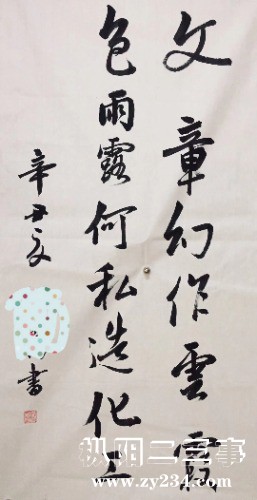 文章幻作雲霞
色雨露何私造化工
辛丑
書
枞阳二三事
www.zy234.com